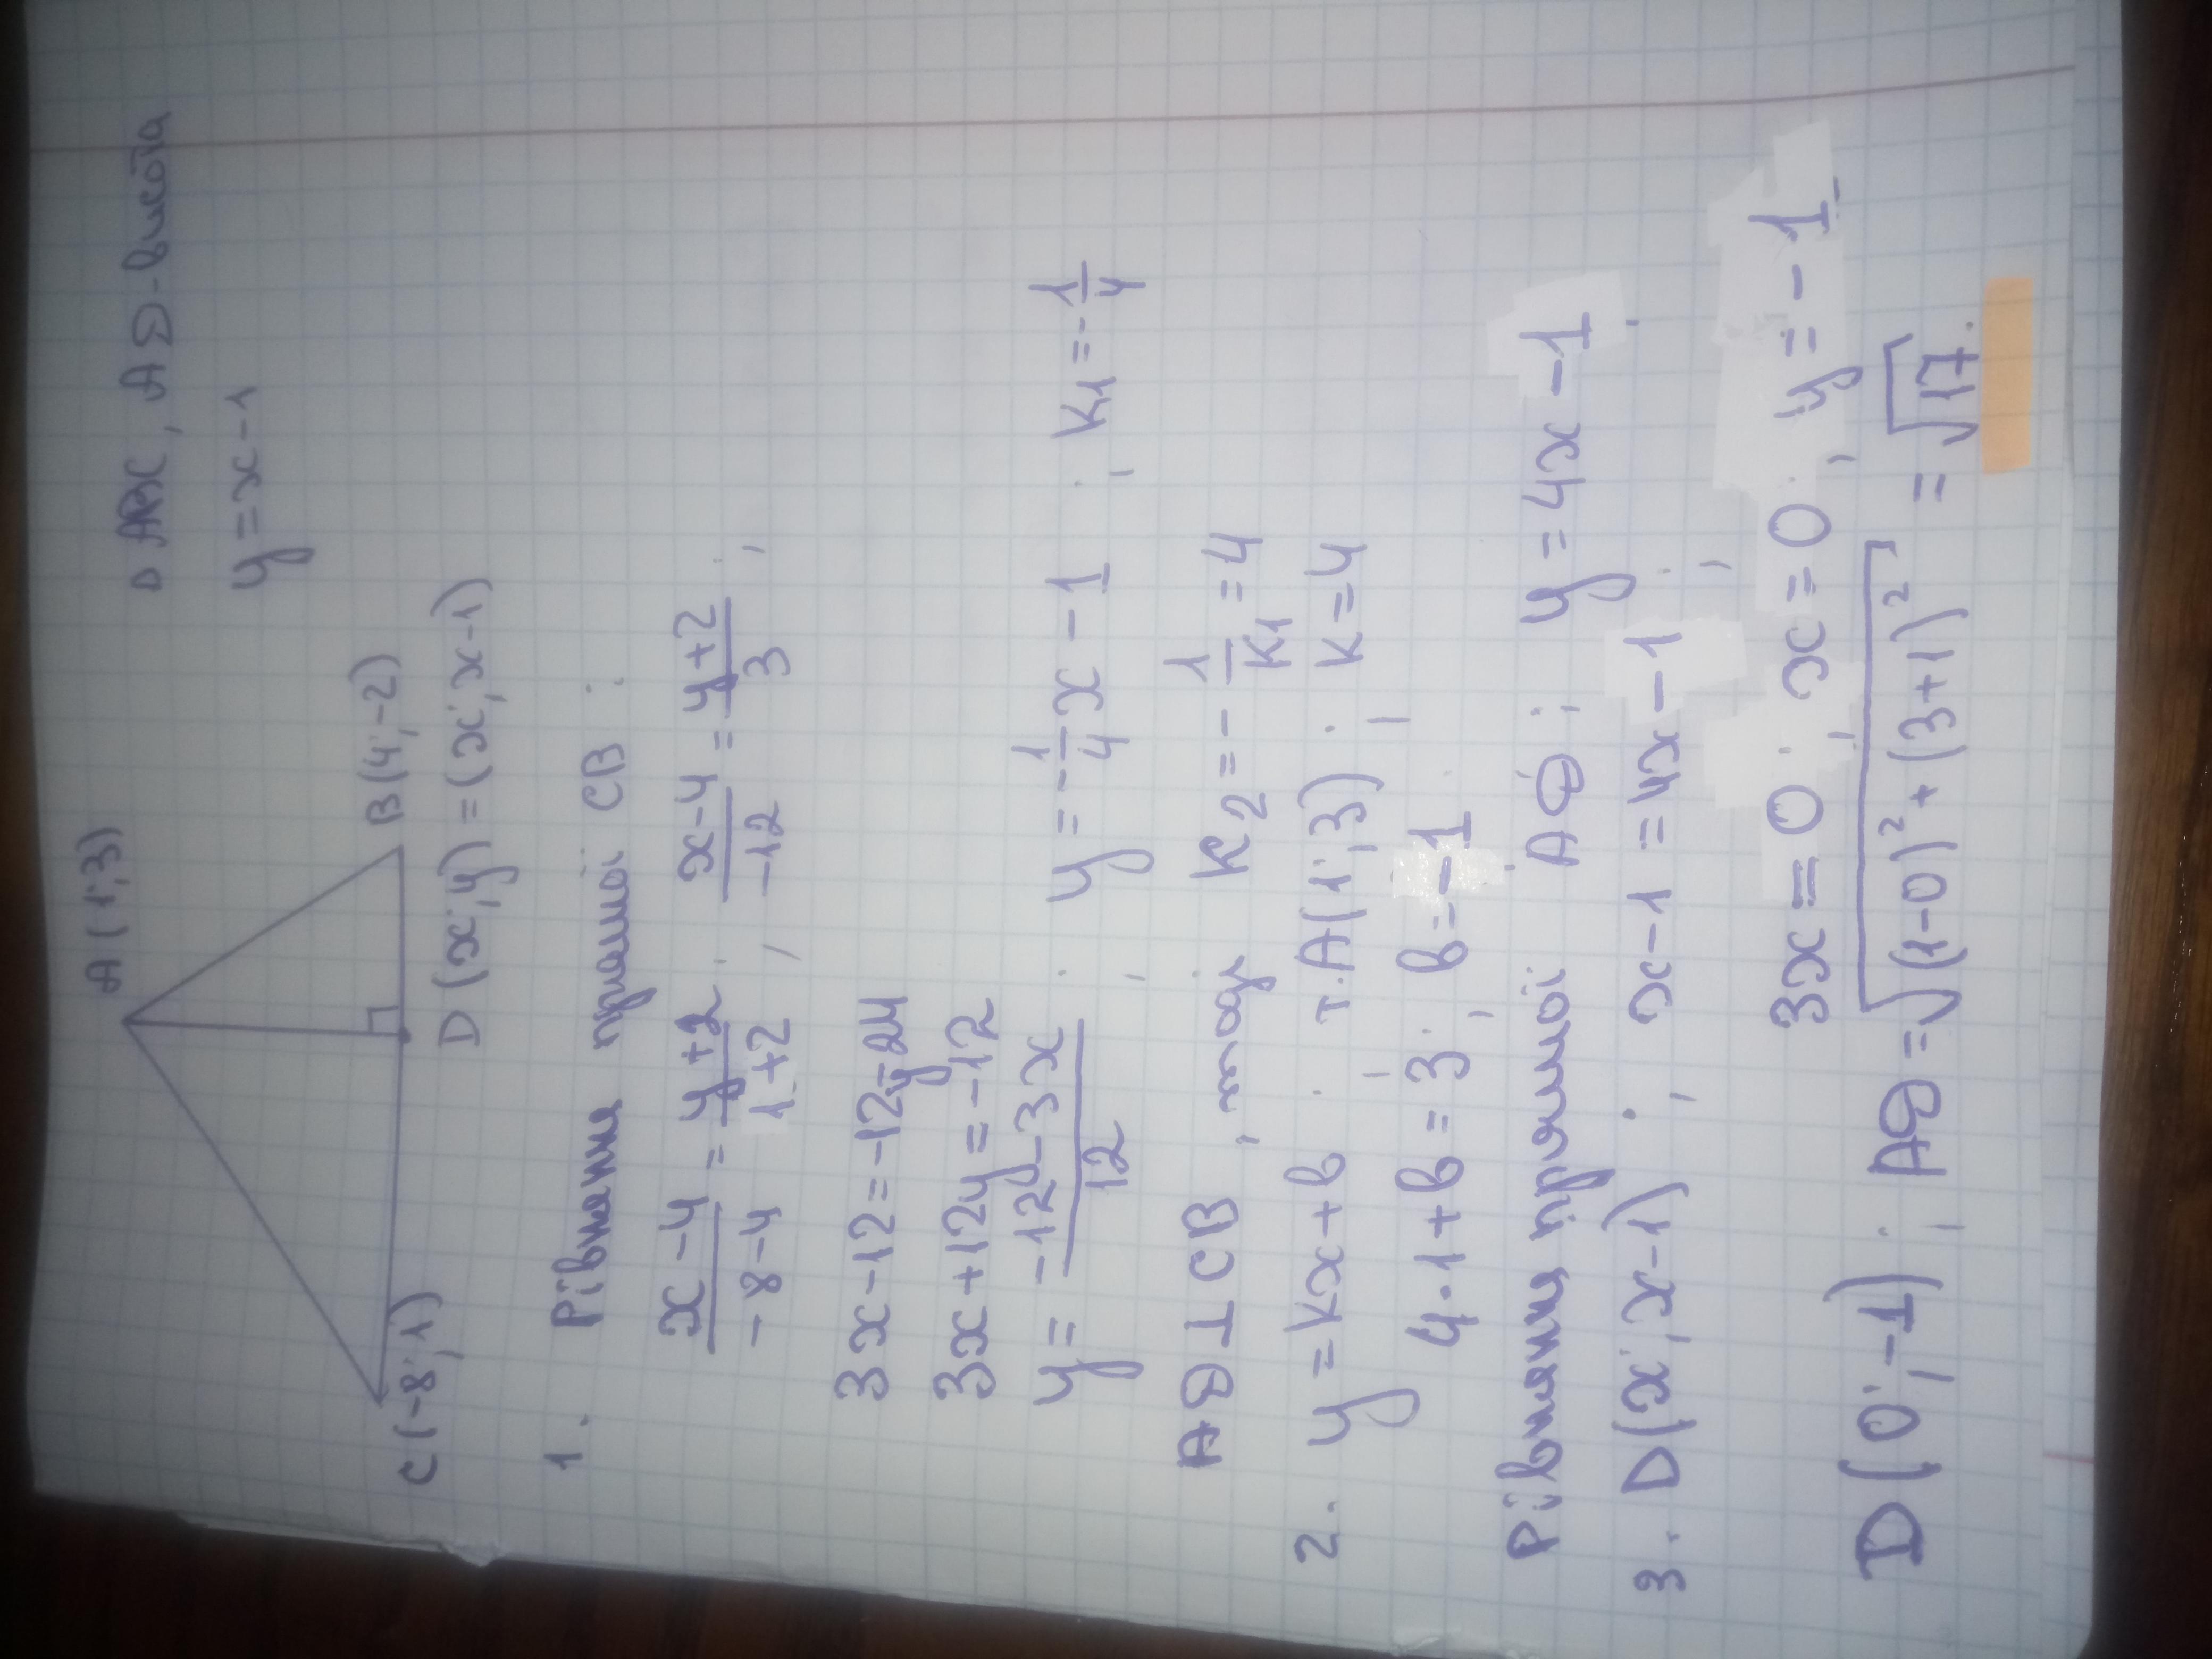 A(1;3)
△ABC, AD-висота
y=x-1
C(-8;1)
B(4;-2)
D(x;y)=(x;x-1)
1. Рівняння прямої CB:
(x-4)/(-8-4) = (y+2)/(1+2); (x-4)/(-12) = (y+2)/3;
3x-12=-12y-24
3x+12y=-12
y=(-12-3x)/12; y=-1/4x-1; K₁=-1/4
AD⊥CB, тоді K₂=-1/K₁=4
2. y=Kx+b; т.A(1;3); K=4
4·1+b=3; b=-1
Рівняння прямої AD; y=4x-1
3. D(x;x-1); x-1=4x-1;
3x=0; x=0; y=-1
D(0;-1); AD=√((1-0)²+(3+1)²)=√17.